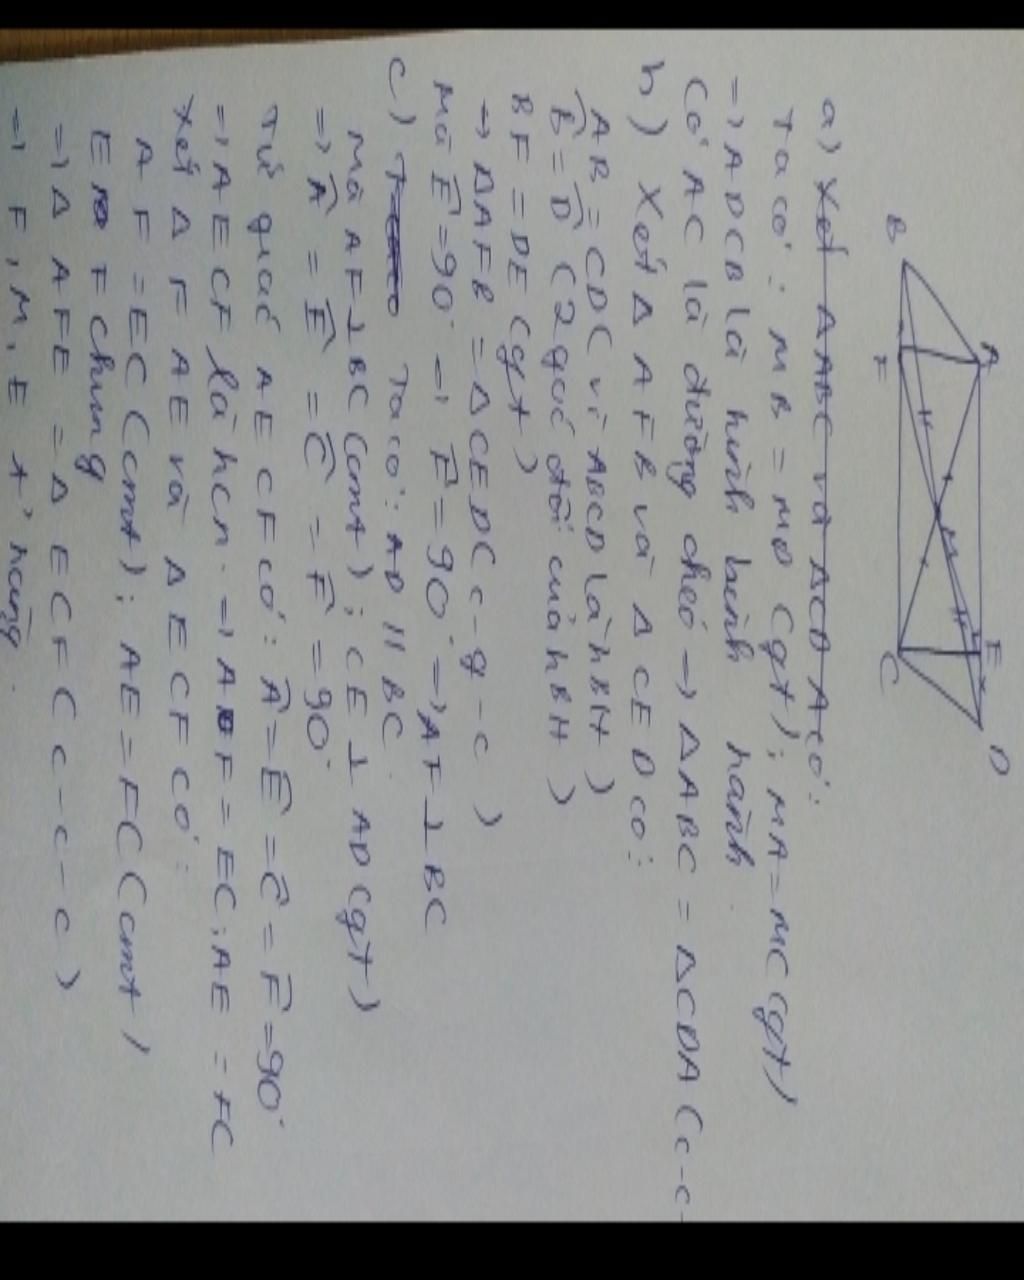 B
A
F
M
E
C
D
a) Xét ΔABC và ΔCDA có:
Ta có: MB = MD (gt); MA = MC (gt)
=> ADCB là hình bình hành
Có AC là đường chéo → ΔABC = ΔCDA (c-c-
b) Xét Δ AFB và Δ CED có:
AB = CD (vì ABCD là hBH)
B̂ = D̂ (2 góc đối của hBH)
BF = DE (gt)
→ ΔAFB = ΔCED (c-g-c)
Mà Ê = 90° => F̂ = 90° => AF ⊥ BC
c) Ta có: AD // BC
Mà AF ⊥ BC (cmt); CE ⊥ AD (gt)
=> Â = Ê = Ĉ = F̂ = 90°
Tứ giác AECF có: Â = Ê = Ĉ = F̂ = 90°
=> AECF là hcn. => AF = EC; AE = FC
Xét Δ FAE và Δ ECF có:
AF = EC (cmt); AE = FC (cmt)
EF chung
=> Δ AFE = Δ ECF (c-c-c)
=> F, M, E t' hàng.